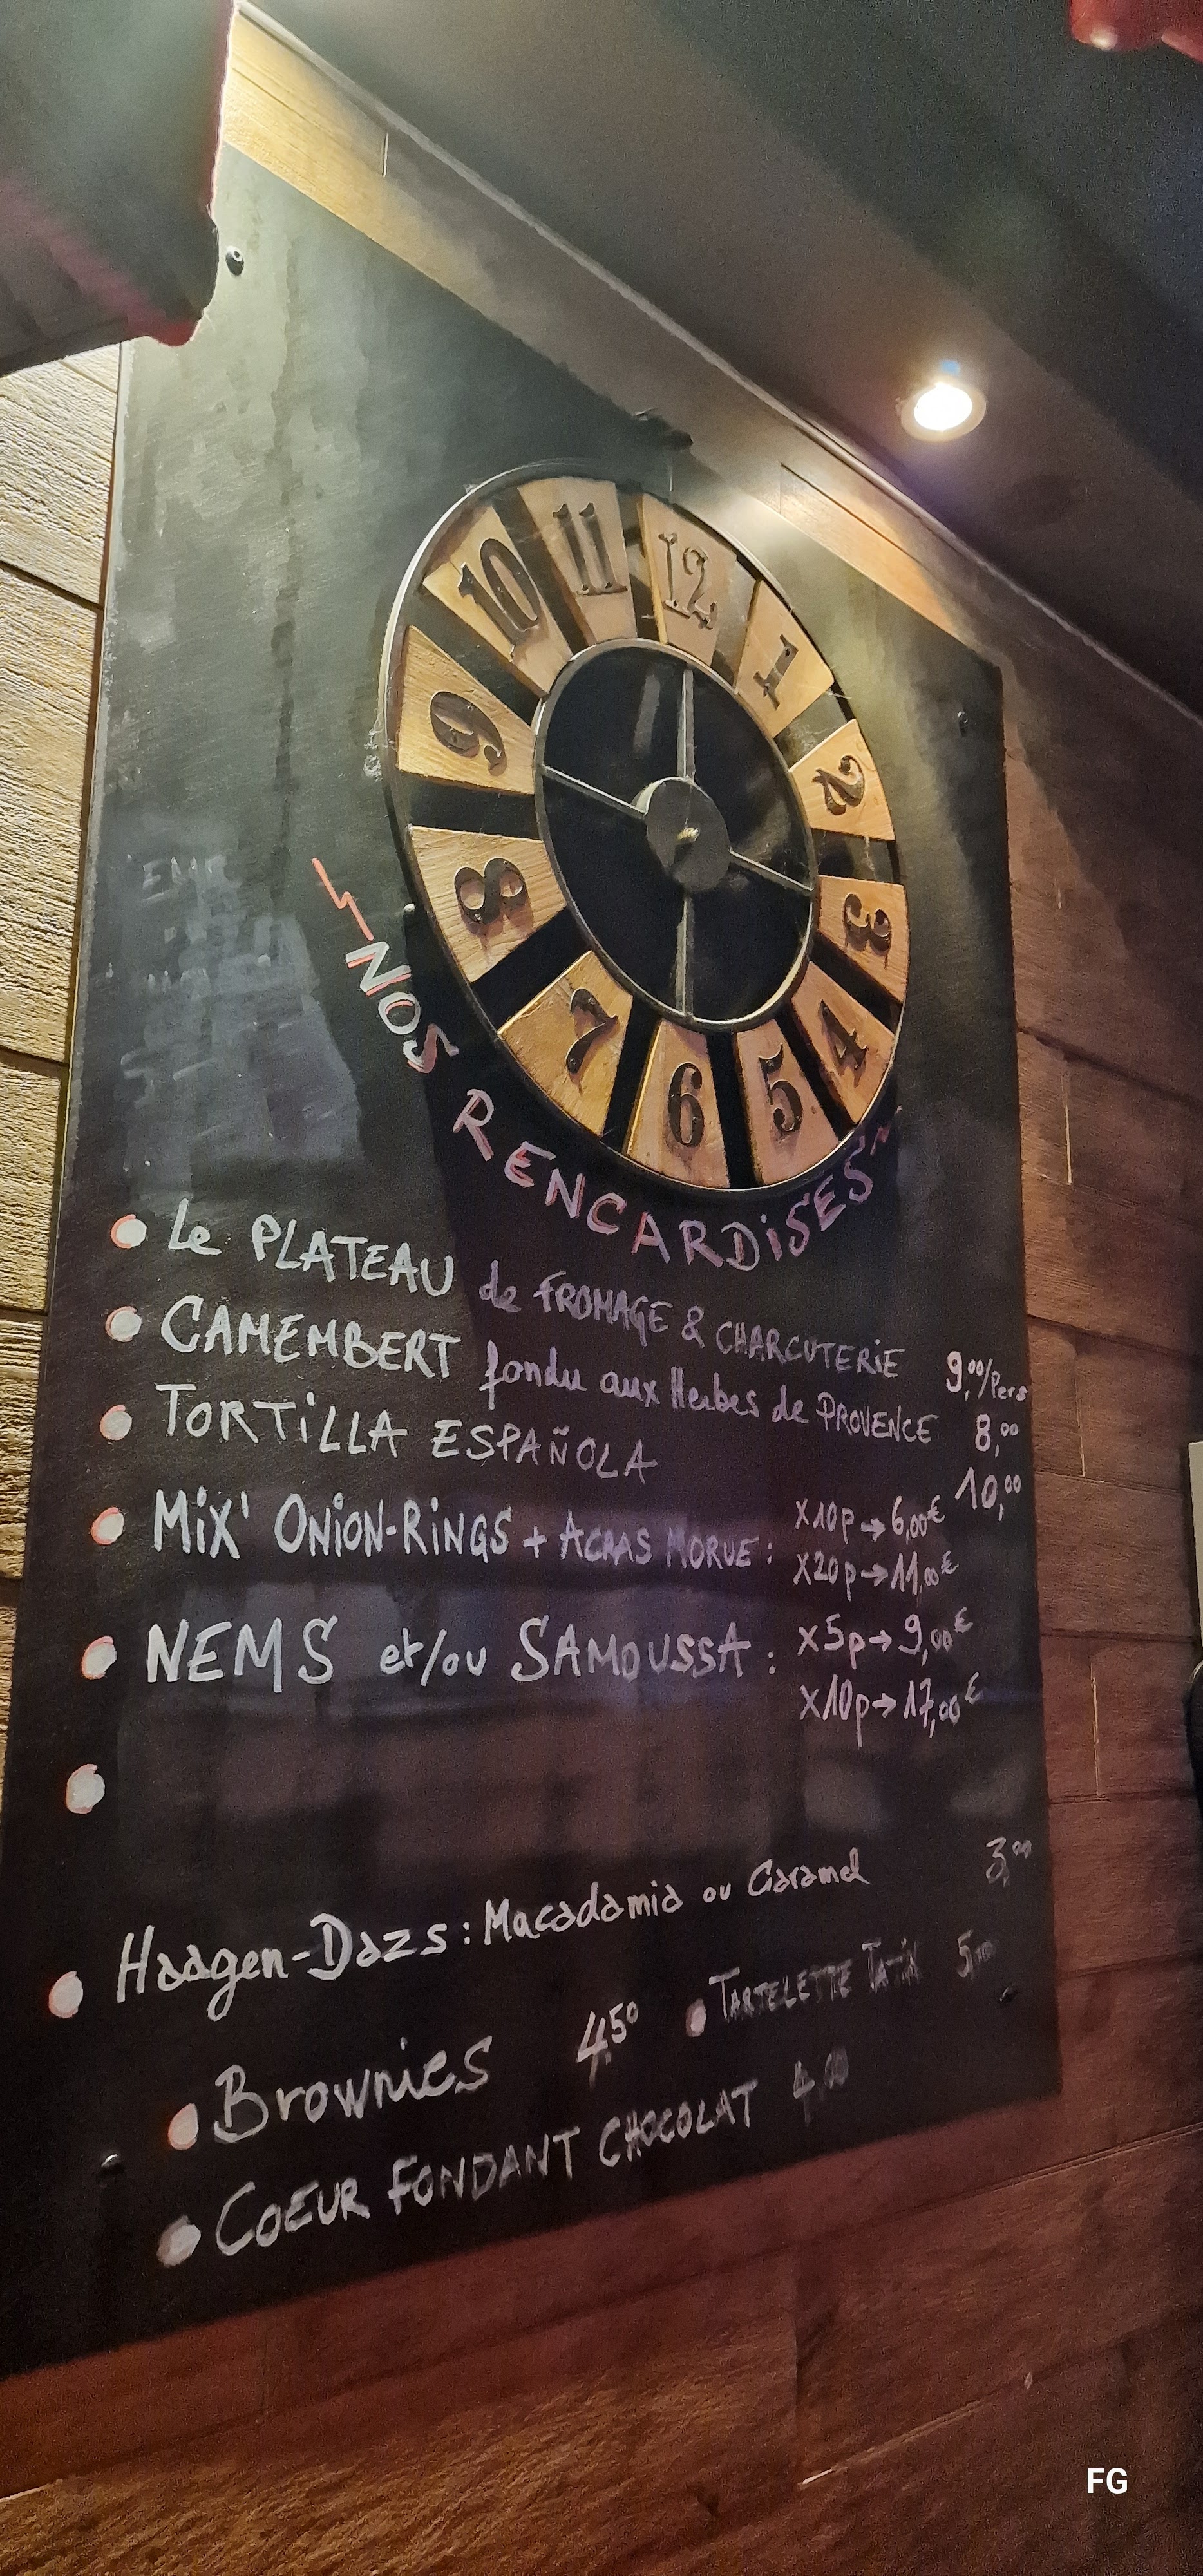 11 12
10 1
9 2
8 3
7 4
6 5
NOS RENCARDISES
Le PLATEAU de FROMAGE & CHARCUTERIE 9,00/Pers
CAMEMBERT fondu aux Herbes de PROVENCE 8,00
TORTILLA ESPAÑOLA 10,00
MIX' ONION-RINGS + ACRAS MORUE : X10p → 6,00€
X20p → 11,00€
NEMS et/ou SAMOUSSA : X5p → 9,00€
X10p → 17,00€
Haagen-Dazs : Macadamia ou Caramel 3,00
Brownies 4,50 TARTELETTE TATIN
COEUR FONDANT CHOCOLAT
FG